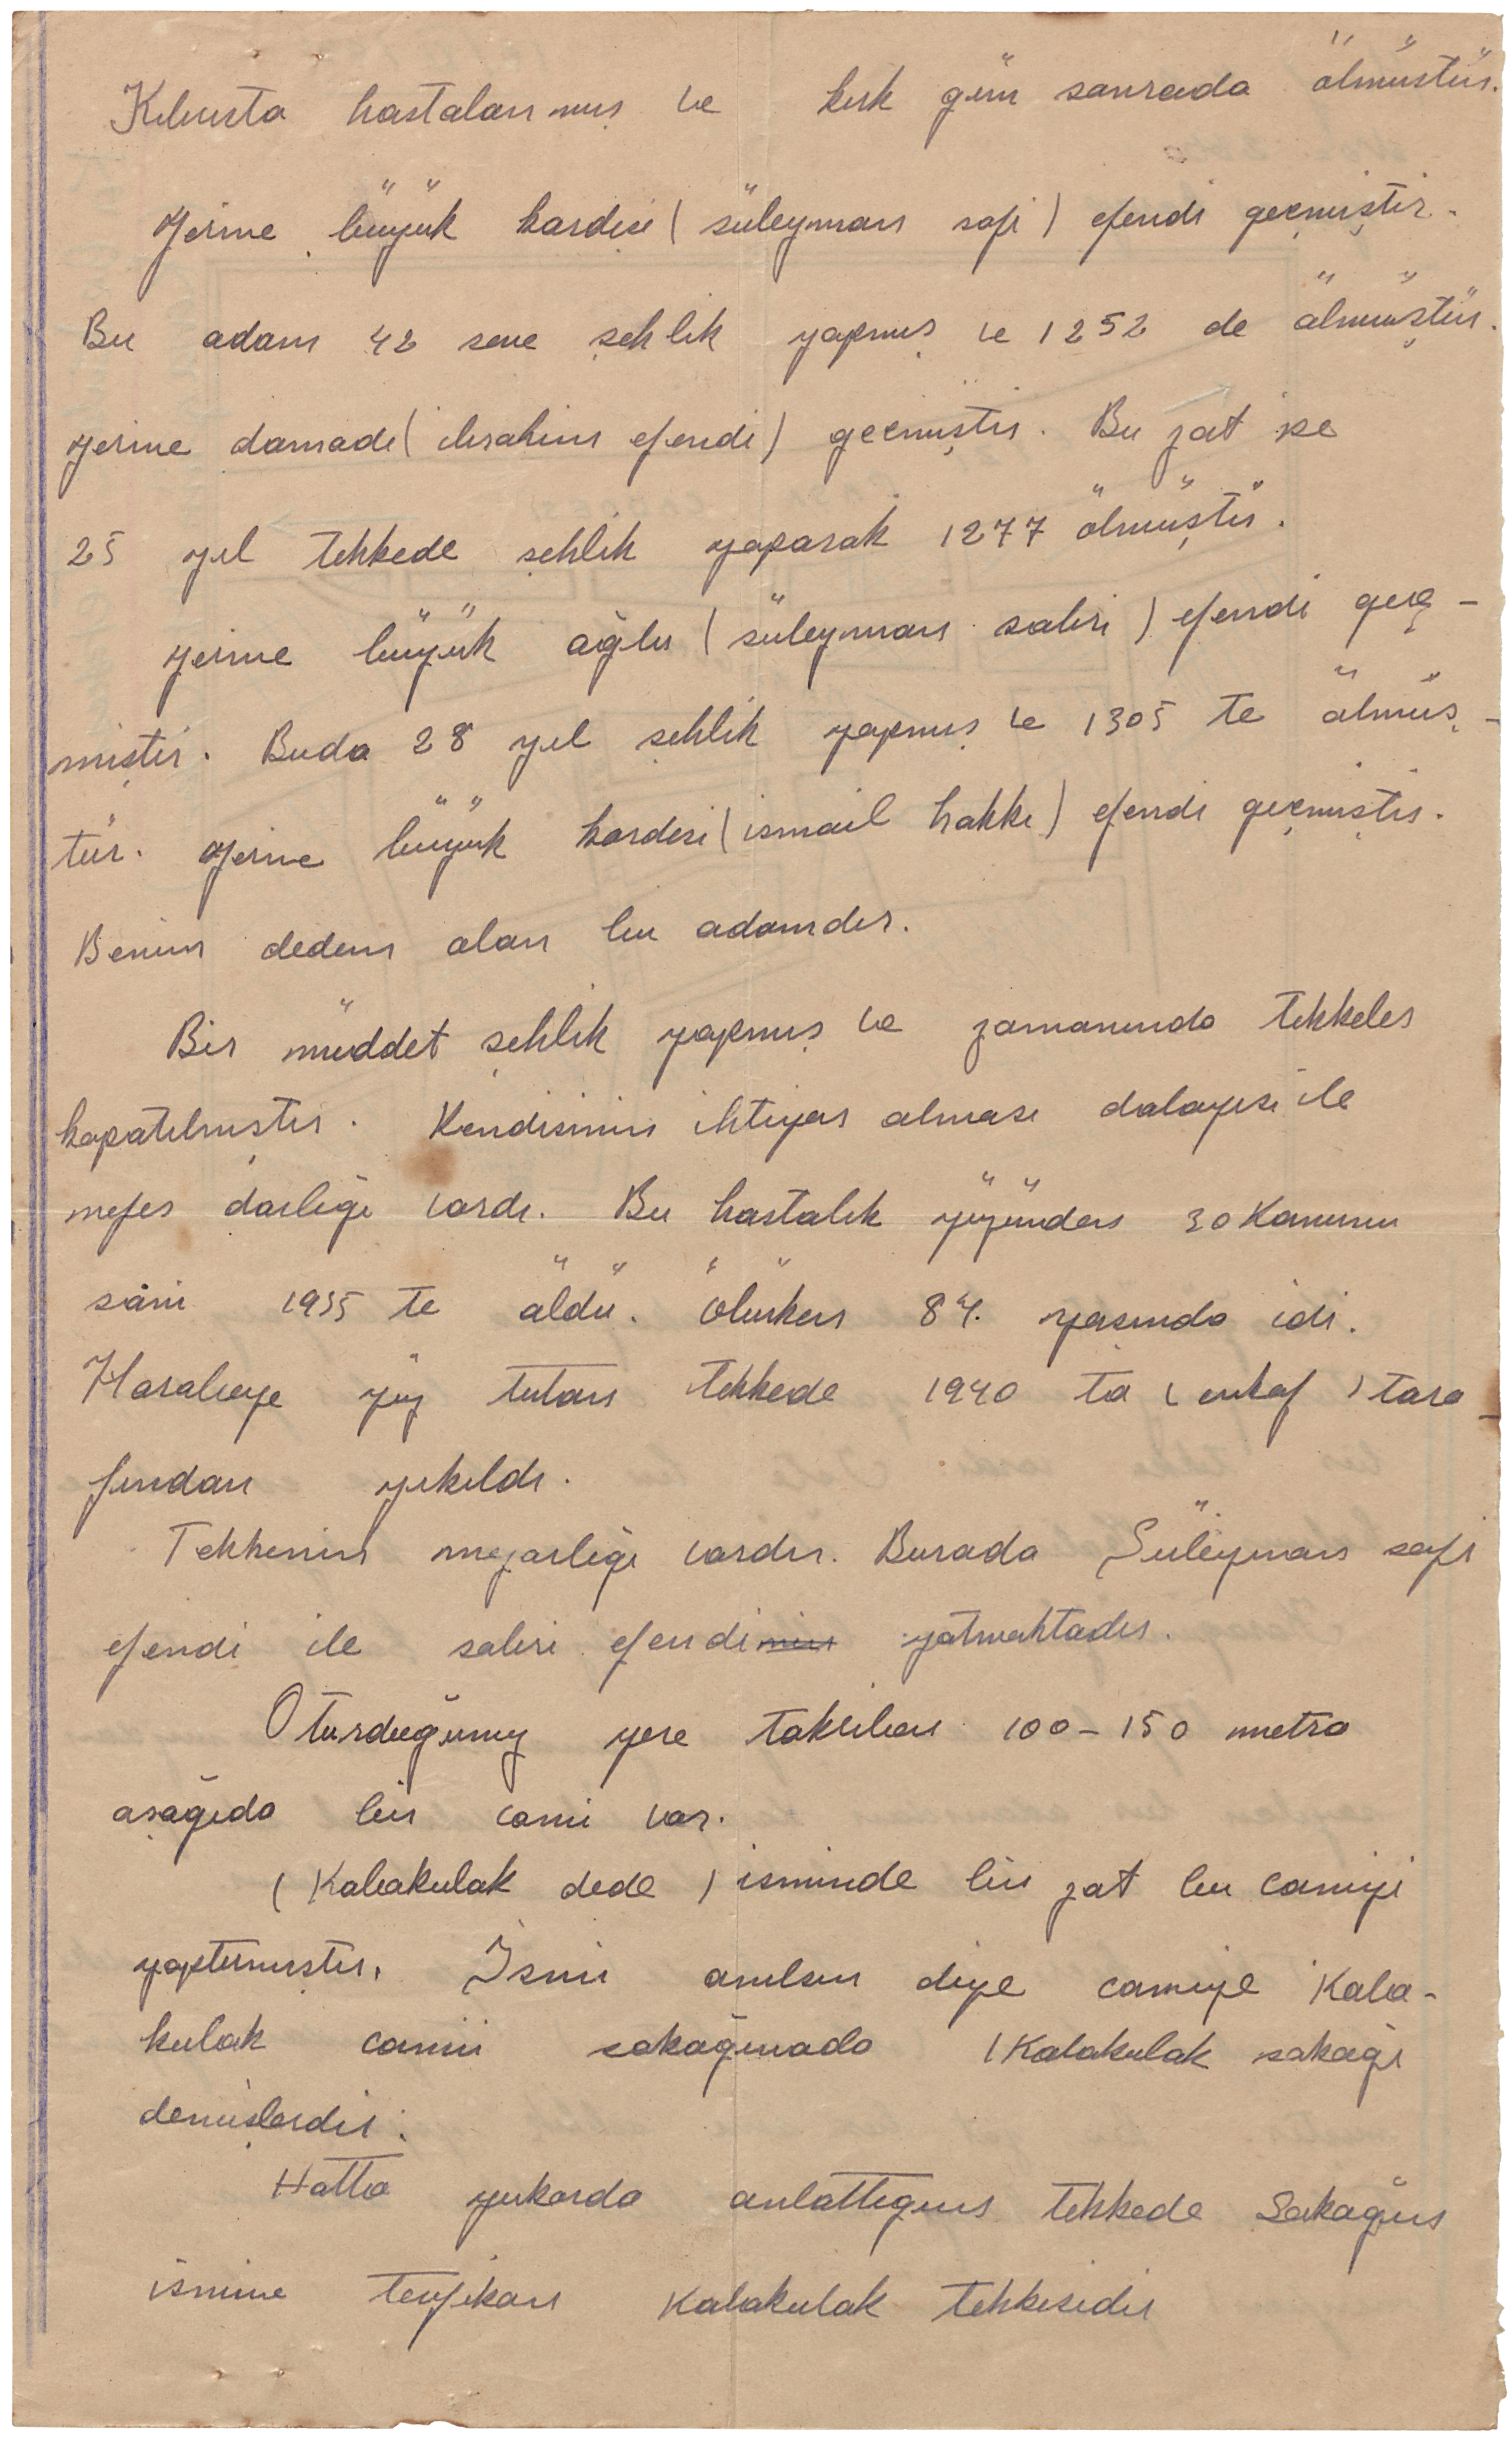 Kıbrısta hastalanmış ve kırk gün sonrada ölmüştür.
Yerine büyük kardeşi ( süleyman safi ) efendi geçmiştir.
Bu adam 42 sene şehlik yapmış ve 1252 de ölmüştür.
yerine damadı ( ibrahim efendi ) geçmiştir. Bu zat ise
25 yıl tekkede şehlik yaparak 1277 ölmüştür.
yerine büyük oğlu ( süleyman sabri ) efendi geç-
miştir. Buda 28 yıl şehlik yapmış ve 1305 te ölmüş-
tür. yerine büyük kardeşi ( ismail hakkı ) efendi geçmiştir.
Benim dedem olan bu adamdır.
Bir müddet şehlik yapmış ve zamanında tekkeler
kapatılmıştır. Kendisinin ihtiyar olması dolayısi ile
nefes darlığı vardı. Bu hastalık yüzünden 30 Kanunu
sâni 1935 te öldü. ölürken 84 yaşında idi.
Harabeye yüz tutan tekkede 1940 ta ( evkaf ) tara-
fından yıkıldı.
Tekkenin mezarlığı vardır. Burada Süleyman safi
efendi ile sabri efendi yatmaktadır.
Oturduğumuz yere takriben 100-150 metro
aşağıda bir cami var.
( Kabakulak dede ) isminde bir zat bu camiyi
yaptırmıştır. İsmi anılsın diye camiye Kaba-
kulak camii sokağınada ( Kabakulak sokağı
demişlerdir.
Hatta yukarda anlattığım tekkede Sokağın
ismine tevfikan Kabakulak tekkesidir